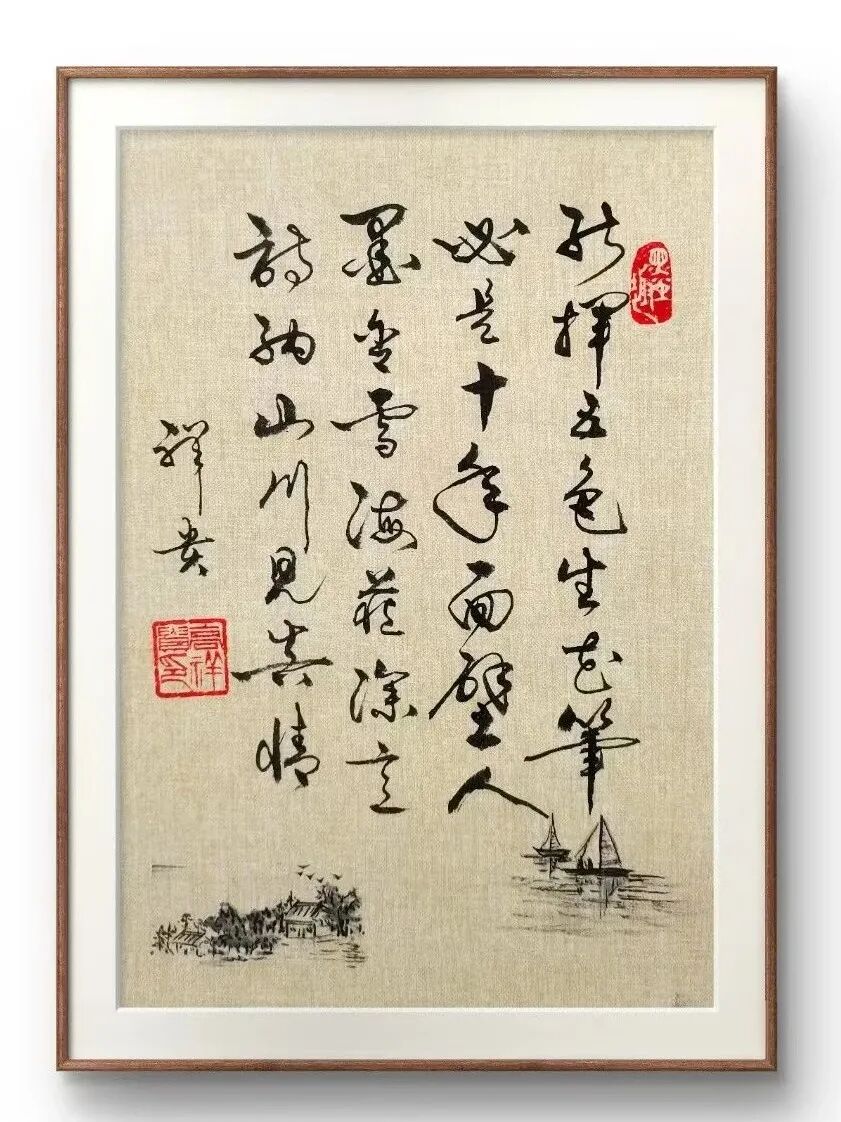 能揮五色生花筆
必是十年面壁人
墨含雪海蘊深意
詩納山川見真情
祥貴